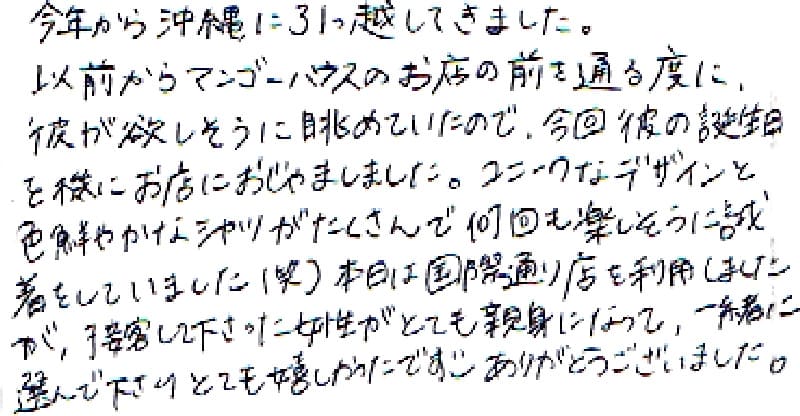 今年から沖縄に引っ越してきました。
以前からマンゴーハウスのお店の前を通る度に、
彼が欲しそうに眺めていたので、今回彼の誕生日
を機にお店におじゃましました。ユニークなデザインと
色鮮やかなシャツがたくさんで何回も楽しそうに試
着をしていました(笑)本日は国際通り店を利用しました
が、接客して下さった女性がとても親身になって、一緒に
選んで下さりとても嬉しかったです。ありがとうございました。